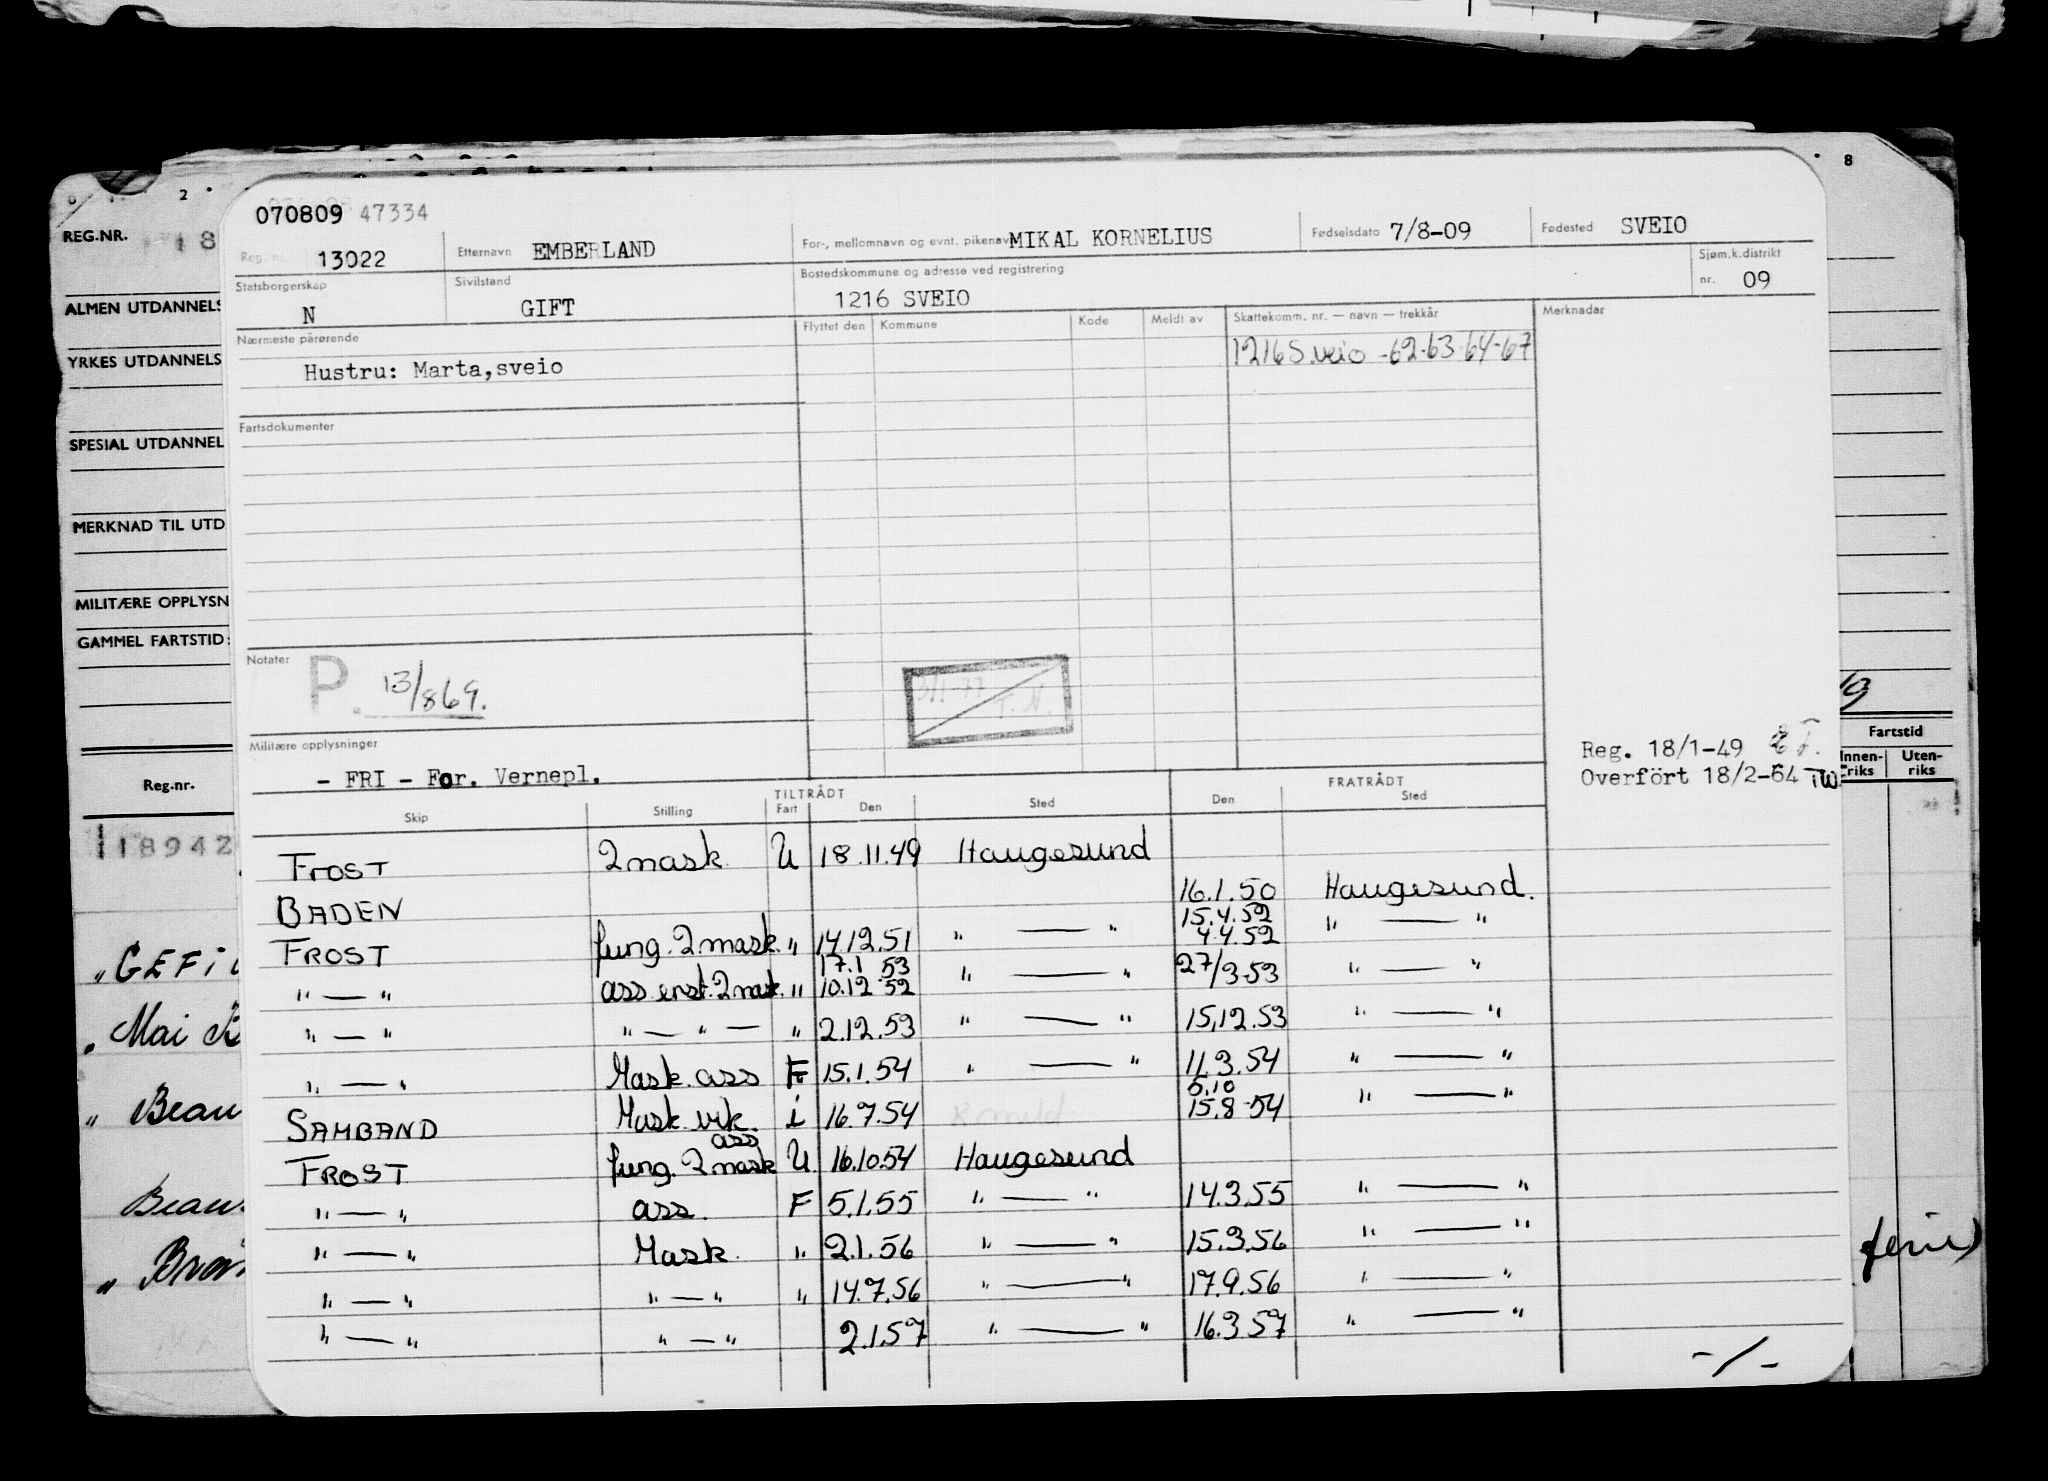 2
8
REG.NR. 18
ALMEN UTDANNELS
YRKES UTDANNELS
SPESIAL UTDANNEL
MERKNAD TIL UTD
MILITÆRE OPPLYSN
GAMMEL FARTSTID:
Reg.nr.
18942
"GEFi
"Mai B
" Beau
Beau
" Bra
070809 47334
Reg. nr. 13022
Etternavn EMBERLAND
For-, mellomnavn og evnt. pikenavn MIKAL KORNELIUS
Fødselsdato 7/8-09
Fødested SVEIO
Statsborgerskap N
Sivilstand GIFT
Bostedskommune og adresse ved registrering
1216 SVEIO
Sjøm.k.distrikt
nr. 09
Nærmeste pårørende
Hustru: Marta,sveio
Flyttet den Kommune Kode Meldt av Skattekomm. nr. — navn — trekkår Merknadar
1216 Sveio -62-63-64-67
Fartsdokumenter
Notater P. 13/869.
3/1-77
T.N.
Militære opplysninger
- FRI - For. Vernepl.
Reg. 18/1-49
Overfört 18/2-64 TW.
19
Fartstid
Innenriks Utenriks
TILTRÅDT FRATRÅDT
Skip Stilling Fart Den Sted Den Sted
FROST 2mask. U 18.11.49 Haugesund
BADEN 16.1.50 Haugesund.
FROST fung. 2mask. " 14.12.51 " — " 15.4.52 4.4.52 " — "
" — " ass. enst. 2mask. " 17.1 53 10.12 52 " — " 27/3-53 " — "
" — " " — " — " 2.12.53 " — " 15.12.53 " — "
" — " Mask. ass F 15.1.54 " — " 11.3.54 " — "
SAMBAND Mask. vik. i 16.7.54 5.10 15.8-54 " — "
FROST fung. 2mask ass U 16.10.54 Haugesund
" — " ass. F 5.1.55 " — " 14.3.55 " — "
" — " Mask. " 2.1.56 " — " 15.3.56 " — "
" — " " — " " 14.7.56 " — " 17.9.56 " — "
" — " " — " 2.1.57 " — " 16.3.57 " — "
-/-